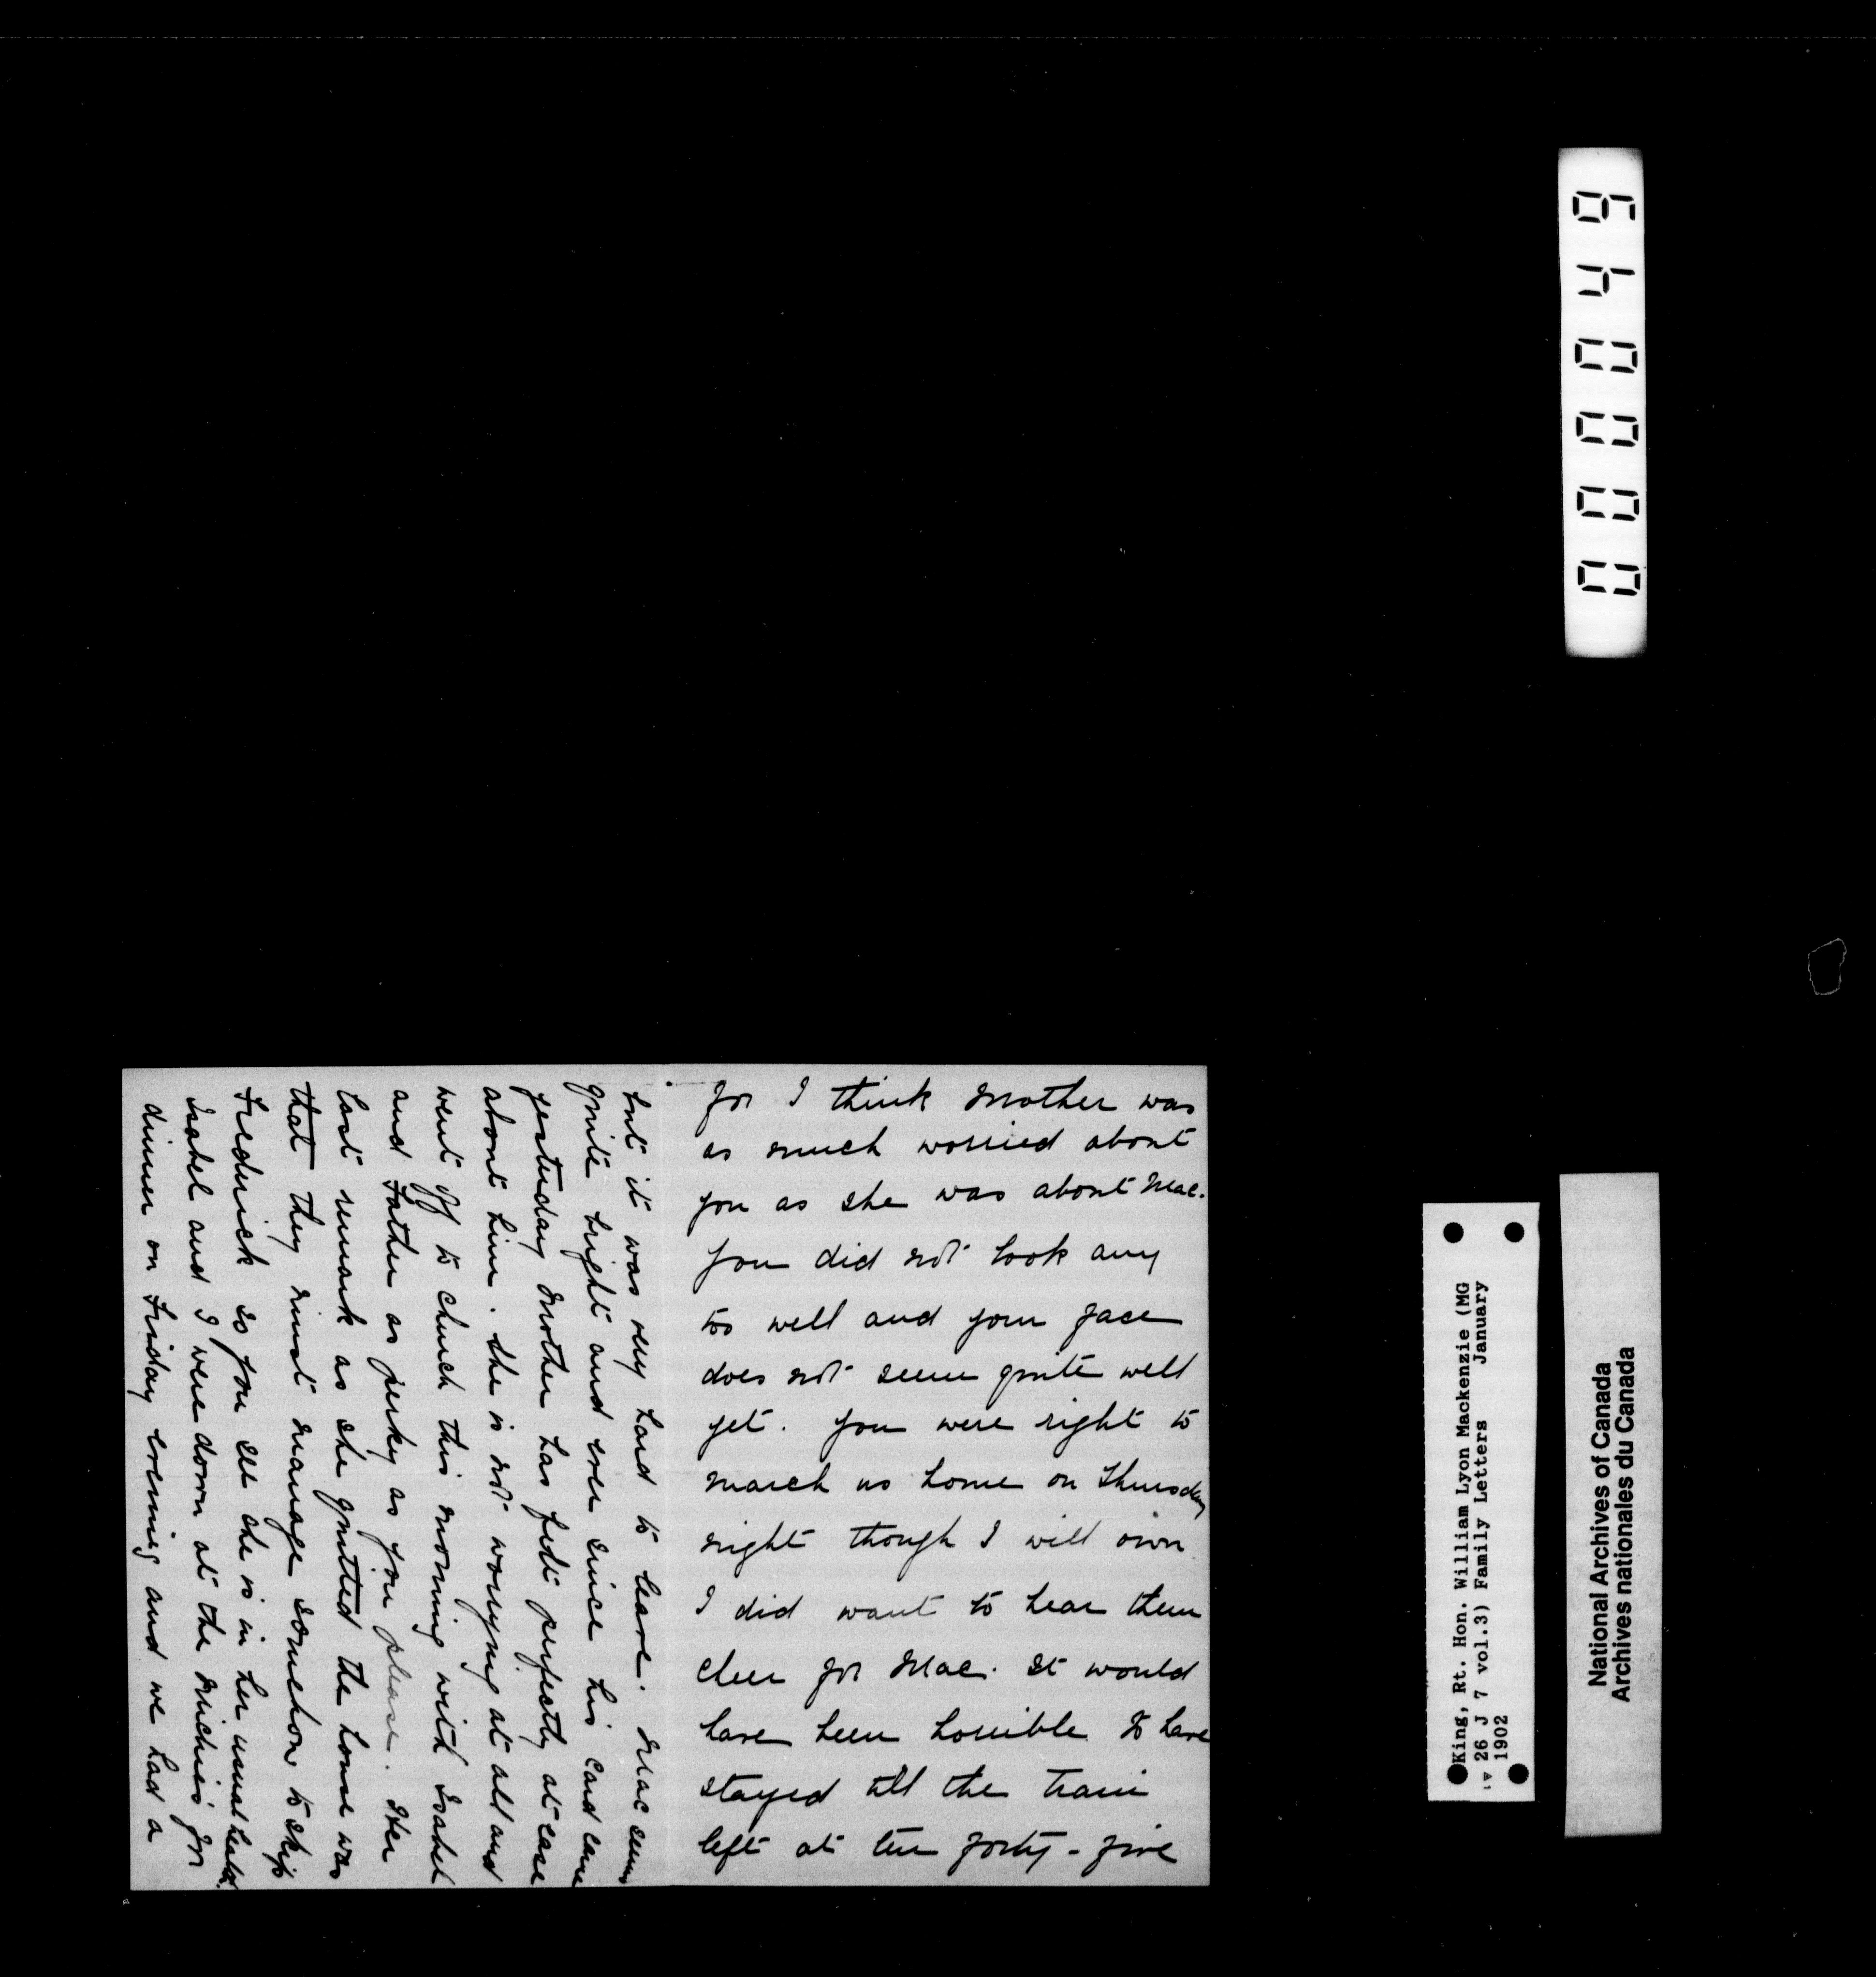 for I think Mother was
as much worried about
you as she was about Mac.
You did not look any
too well and your face
does not seem quite well
yet. You were right to
march us home on Thursday
night though I will own
I did want to hear them
cheer for Mac. It would
have been horrible to have
stayed till the train
left at ten forty-five
but it was very hard to leave. Mac seems
quite bright and ever since his card came
yesterday Mother has felt perfectly at ease
about him. She is not worrying at all and
went off to church this morning with Isabel
and Father as perky as you please. Her
last remark as she quitted the house was
that they must manage somehow to skip
Frederick so you see she is in her usual health.
Isabel and I were down at the Michies for
dinner on Friday evening and we had a
000049
King, Rt. Hon. William Lyon Mackenzie (MG
26 J 7 vol.3) Family Letters January
1902
National Archives of Canada
Archives nationales du Canada